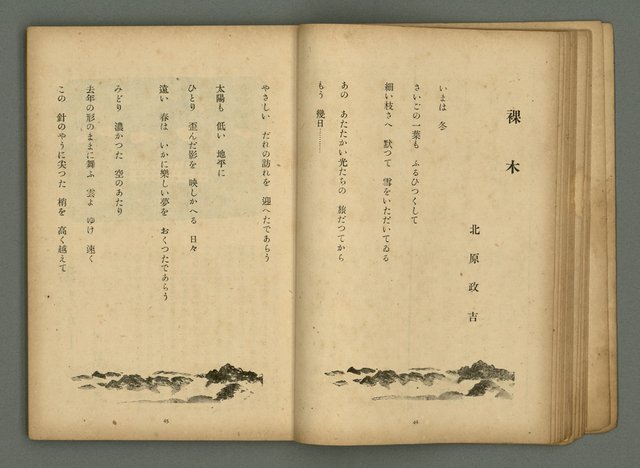 裸木
北原政吉
いまは 冬
さいごの一葉も ふるひつくして
細い枝さへ 默つて 雪をいただいてゐる
あの あたたかい光たちの 旅だつてから
もう 幾日………
やさしい だれの訪れを 迎へたであらう
太陽も 低い 地平に
ひとり 歪んだ影を 映しかへる 日々
遠い 春は いかに樂しい夢を おくつたであらう
みどり 濃かつた 空のあたり
去年の形のままに舞ふ 雲よ ゆけ 速く
この 針のやうに尖つた 梢を 高く越えて
44
45